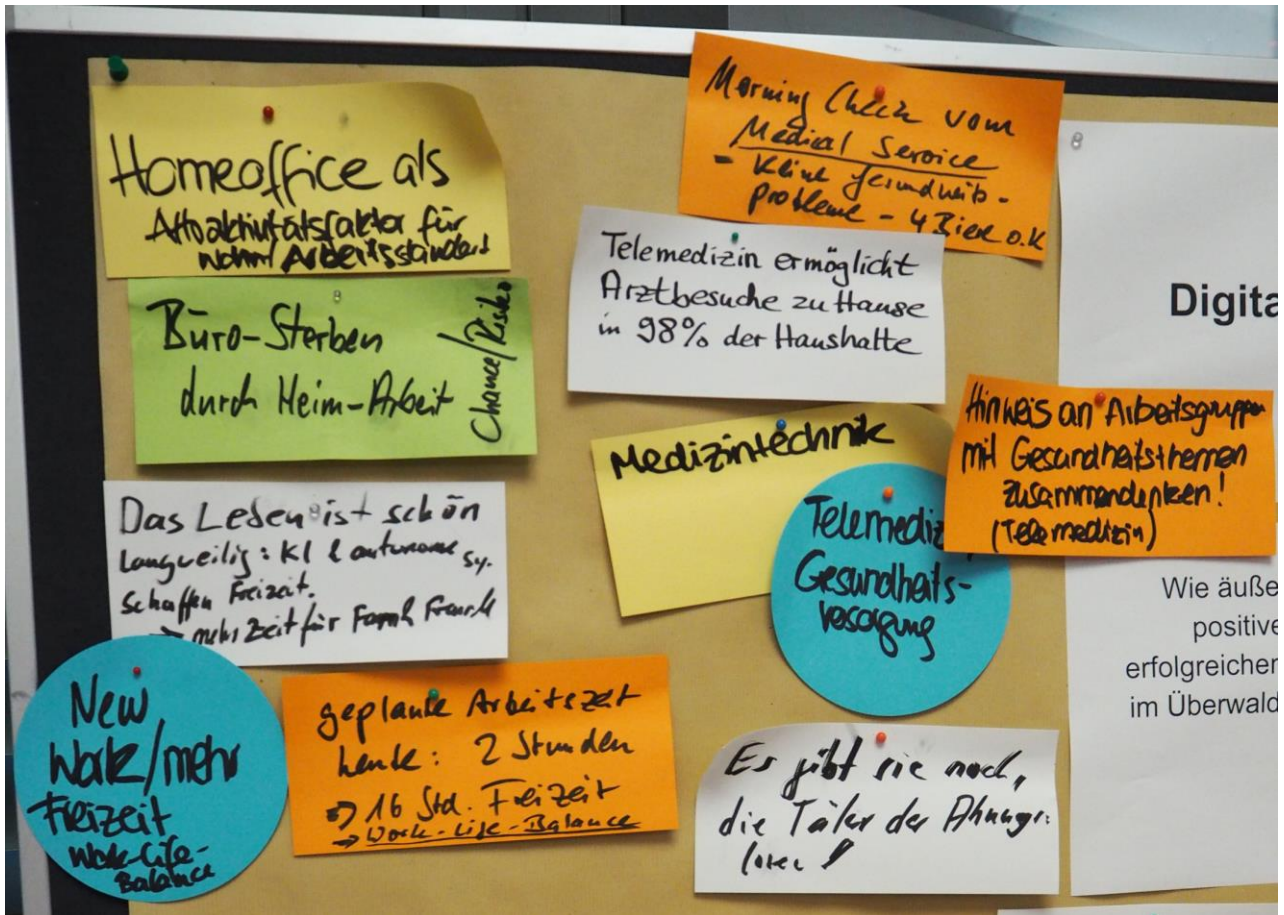 Homeoffice als
Attraktivitätsfaktor für
Wohn/Arbeitsstandort
Büro-Sterben
durch Heim-Arbeit
Chance/Risiko
Das Leben ist schön
Langweilig: KI & autonome Sy.
schaffen Freizeit.
→ mehr Zeit für
New
Work/mehr
Freizeit
Work-Life-
Balance
geplante Arbeitszeit
heute: 2 Stunden
=> 16 Std. Freizeit
→ Work-Life-Balance
Morning Check vom
Medical Service
- Keine Gesundheits-
probleme - 4 Bier o.k
Telemedizin ermöglicht
Arztbesuche zu Hause
in 98% der Haushalte
Medizintechnik
Telemediz
Gesundheits-
versorgung
Hinweis an Arbeitsgruppen
mit Gesundheitsthemen
zusammendenken!
(Telemedizin)
Es gibt sie noch,
die Täler der Ahnungs-
losen!
Digita
Wie äuße
positive
erfolgreicher
im Überwald